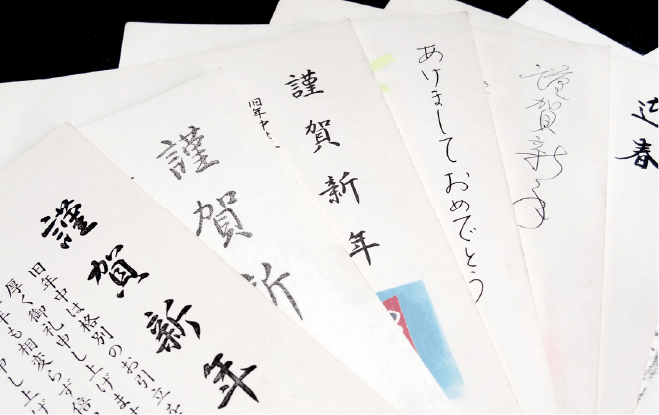 謹賀新年
旧年中は格別のお引立を
厚く御礼申し上げま
年も相変らず倍
申し上げ
謹賀新
謹賀新年
旧年中
あけましておめでとう
謹賀新年
迎春